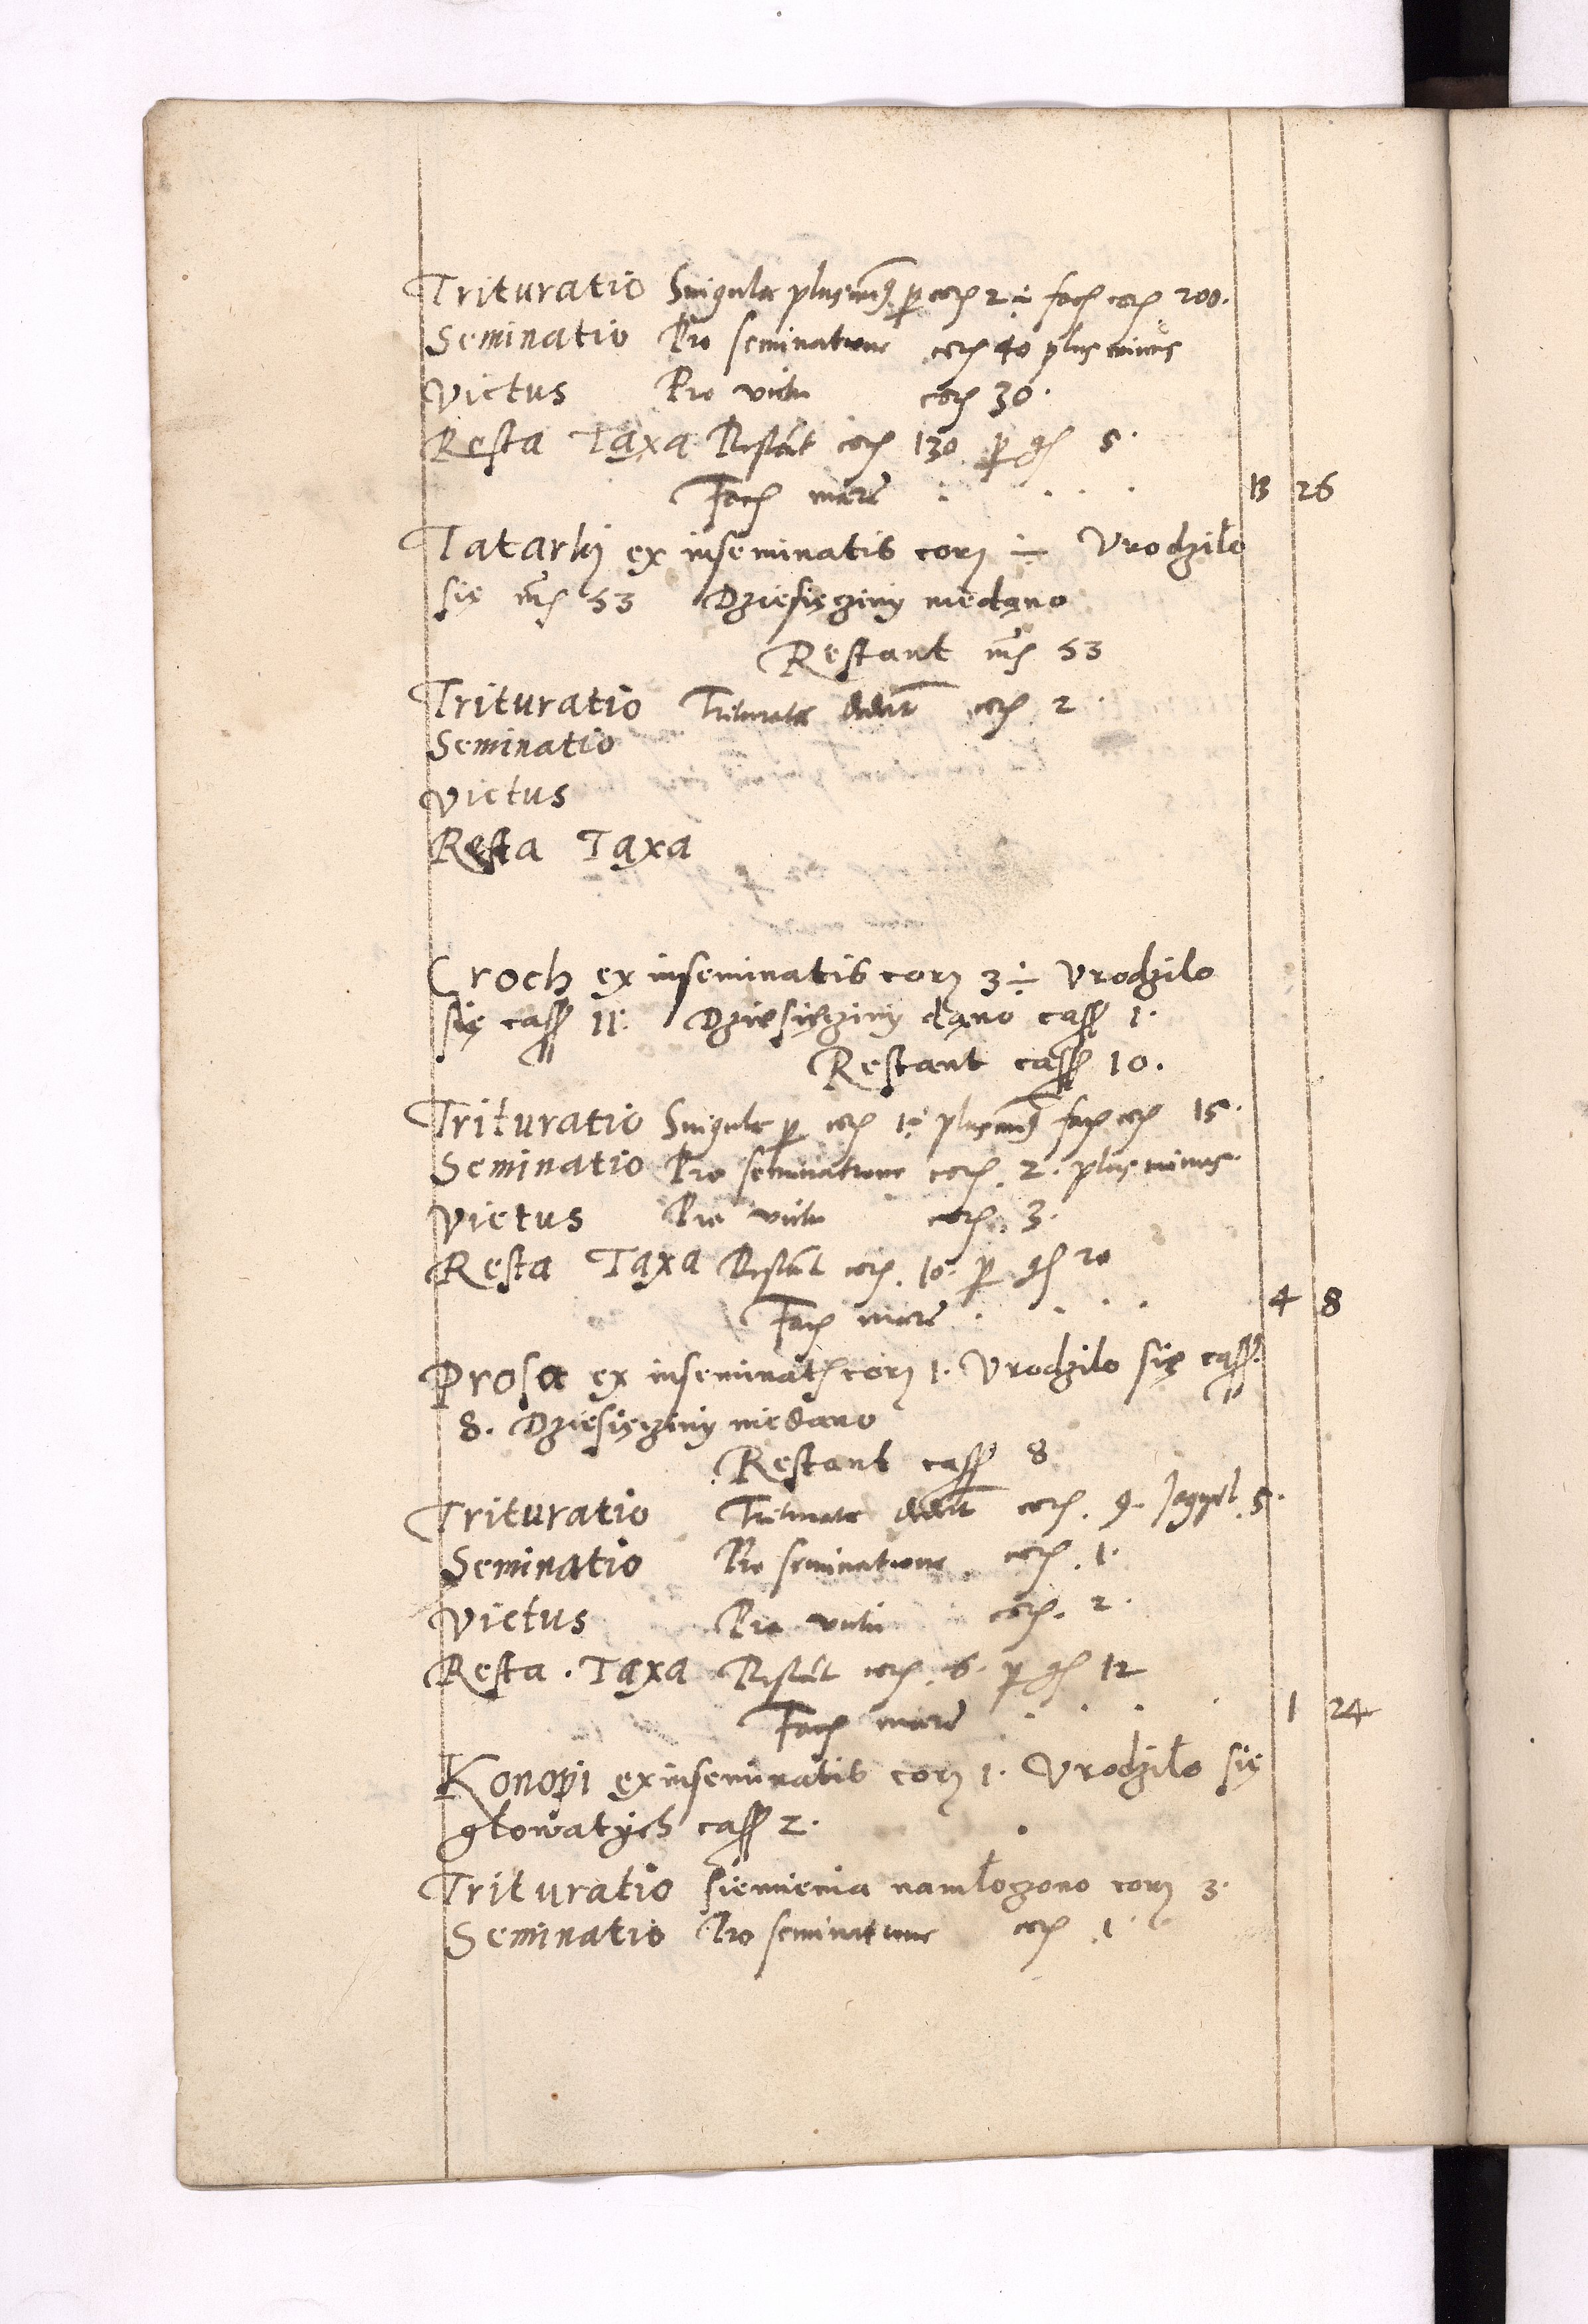 Trituratio Singulae plusminus per coros 2 ÷ fac coros 200.
Seminatio Pro seminatione coros 40 plus minus
Victus Pro victu coros 30.
Resta Taxa Restant coros 130 per gros 5.
Fac marc . . . . 13 26
Tatarki ex inseminatis coris ÷ Vrodziło
się 53 Dziesięciny niedano
Restant 53
Trituratio Trituratae dederunt coros 2.
Seminatio
Victus
Resta Taxa
Croch ex inseminatis coris 3 ÷ Vrodzilo
się cass 11. Dziesięciny dano cass 1.
Restant cass 10.
Trituratio Singulae per coros 1 ÷ plusminus fac coros 15.
Seminatio Pro seminatione coros. 2. plus minus.
Victus Pro victu coros. 3.
Resta Taxa Restant coros. 10. per gros 20
Fac marc . . . . 4 8
Prosa ex inseminatis coris 1. Vrodzilo się cass.
8. Dziesięciny niedano
Restant cass 8
Trituratio Trituratae dederunt coros. 9. Jagyel. 5.
Seminatio Pro seminatione coros. 1.
Victus Pro victu coros. 2.
Resta. Taxa Restant coros. 6. per gros 12
Fac marc . . . . 1 24
Konopi ex inseminatis coris 1. Vrodziło się
głowatych cass 2.
Trituratio siemienia namłoczono coris 3.
Seminatio Pro seminatione coros 1.